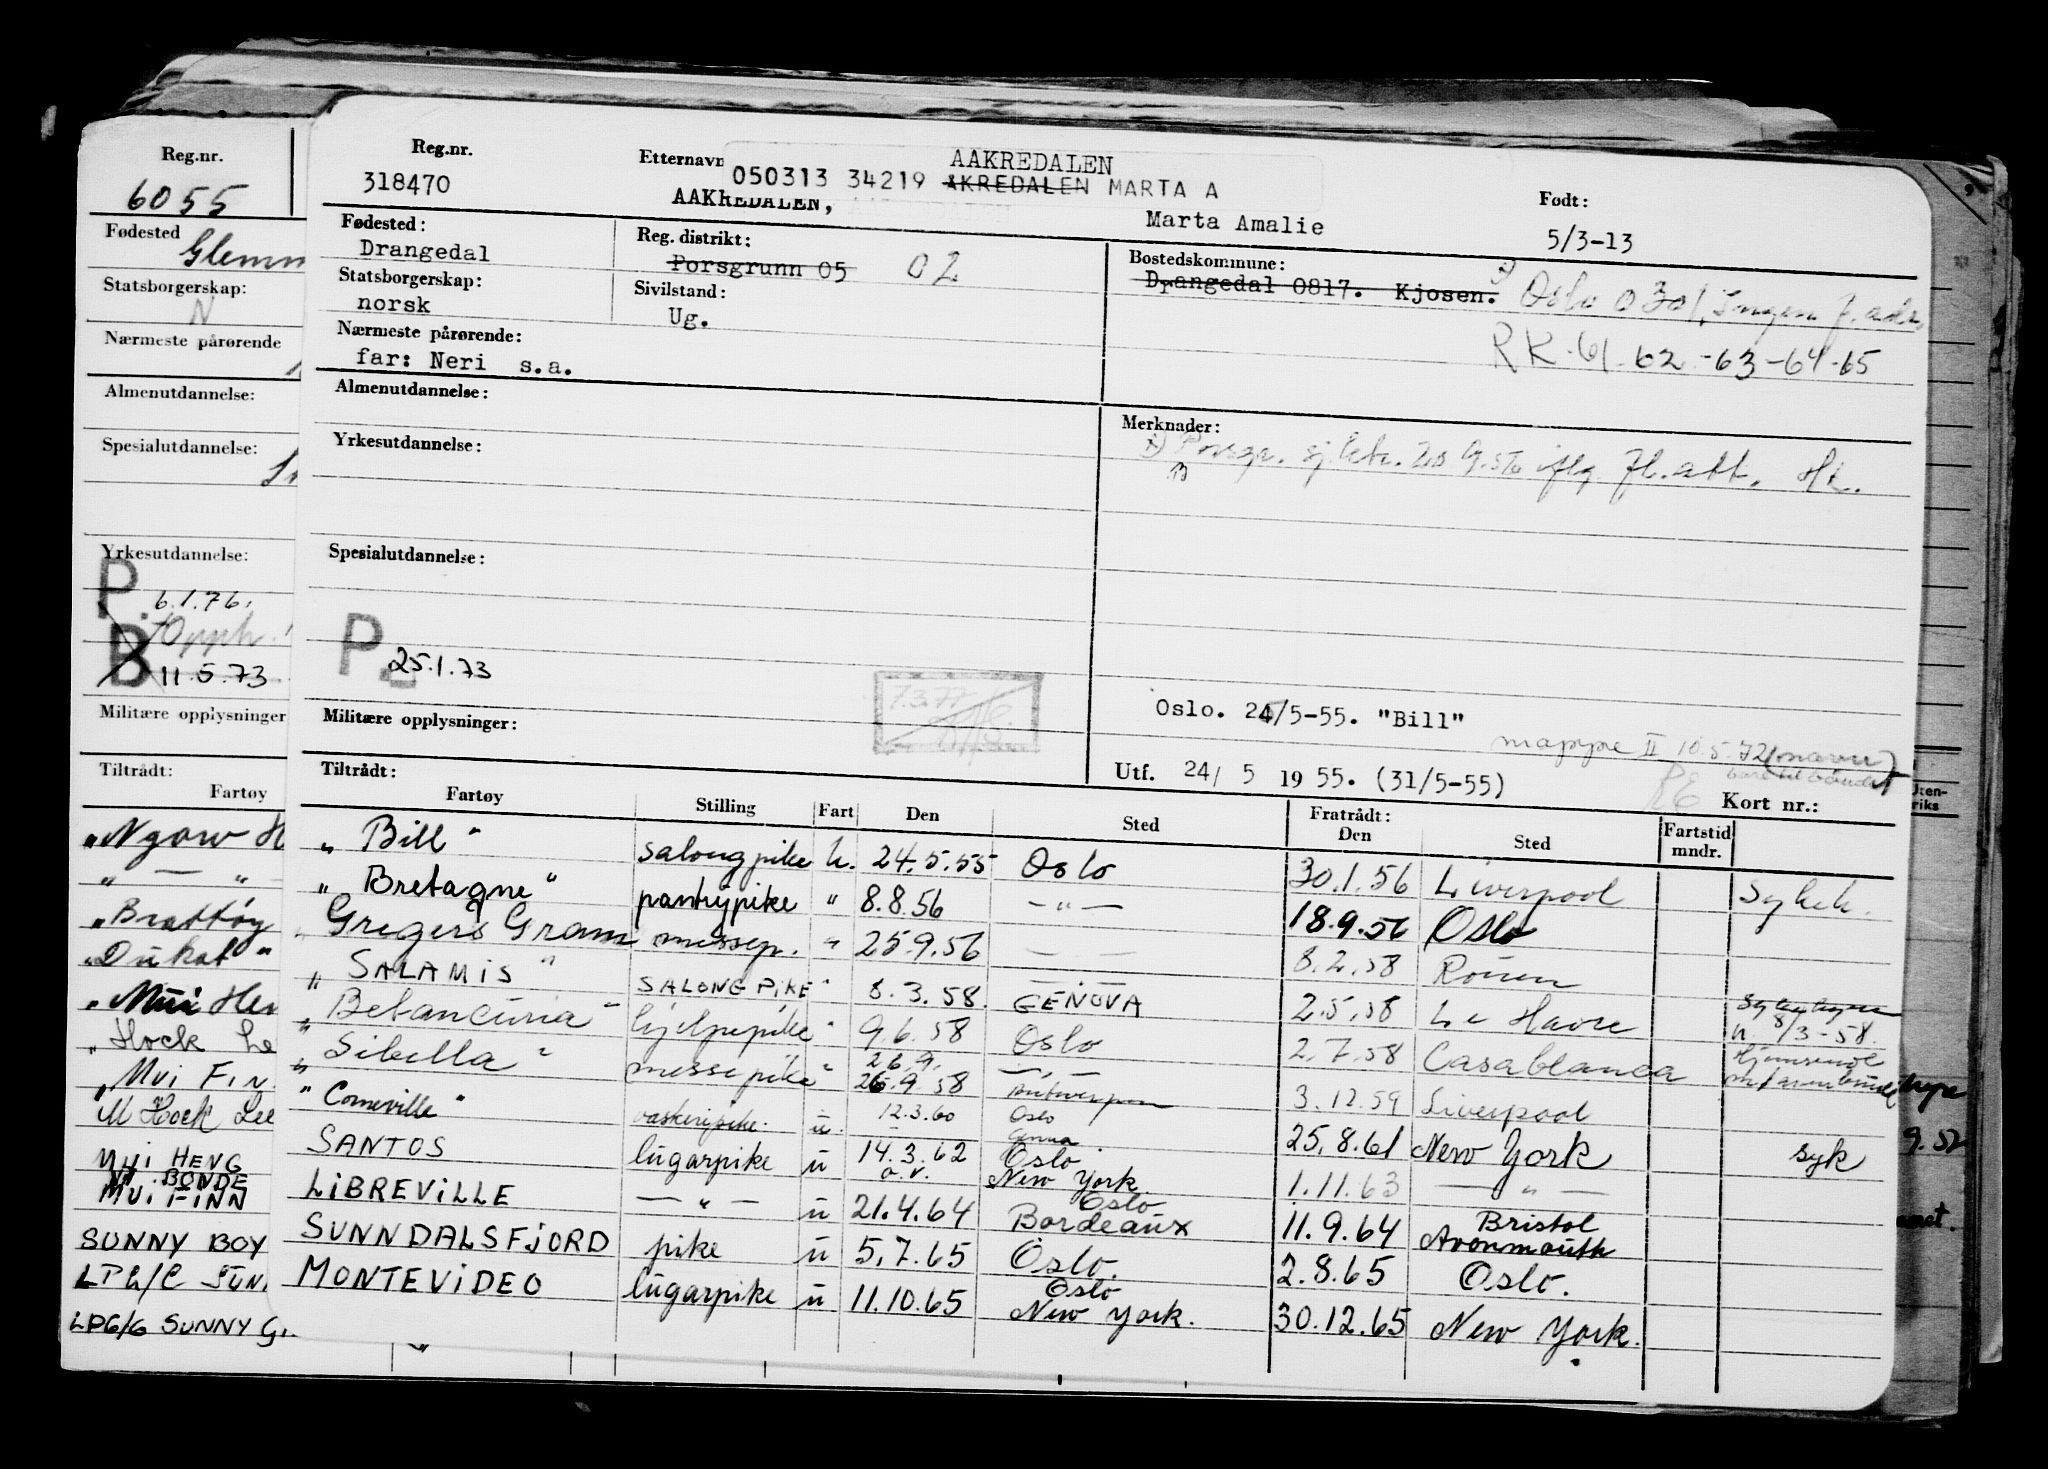 Reg.nr.
6055
Fødested
Statsborgerskap:
N
Nærmeste pårørende
Almenutdannelse:
Spesialutdannelse:
Yrkesutdannelse:
P.
6.1.76.
Opph.
B 11.5.73
Militære opplysninger
Tiltrådt:
Fartøy
"Brattøy
"Dukat"
MUI HENG
BONDE
MUI FINN
SUNNY BOY
LPG/C SUN
LPG/G SUNNY G
Reg.nr.
318470
Etternavn
AAKREDALEN
050313 34219 AKREDALEN MARTA A
AAKREDALEN,
Marta Amalie
Født:
5/3-13
Fødested:
Drangedal
Reg. distrikt:
Porsgrunn 05 02
Bostedskommune:
Drangedal 0817. Kjosen. Oslo 0301, Ingen f. adr.
Statsborgerskap:
norsk
Sivilstand:
Ug.
RK-61-62-63-64-65
Nærmeste pårørende:
far: Neri s.a.
Almenutdannelse:
Merknader:
Porsgr. sj.ktr. 20 9.56 iflg. fl.att. Hk.
Yrkesutdannelse:
Spesialutdannelse:
P. 25.1.73
7.3.77
Oslo. 24/5-55. "Bill"
Militære opplysninger:
mappe II 10.5.72 (navn
Utf. 24/ 5 1955. (31/5-55)
Kort nr.:
Tiltrådt:
Fartøy Stilling Fart Den Sted Fratrådt: Den Sted Fartstid mndr.
"Bill" salongpike u. 24.5.55 Oslo 30.1.56 Liverpool Sykeh.
"Bretagne" pantrypike " 8.8.56 — " — 18.9.56 Oslo
Gregers Gram messep. " 25.9.56 — — 8.2.58 Rouen
"SALAMIS" SALONGPIKE " 8.3.58. GENOVA 2.5.58 Le Havre
u. 8/3-58.
"Betancuria" hjelpepike " 9.6.58 Oslo 2.7.58 Casablanca
"Sibella" messepike " 26.9. 26.9.58 — " — Antwerpen 3.12.59 Liverpool
"Corneville" vaskeripike. u. 12.3.60 Oslo 25.8.61 New York syk
SANTOS lugarpike u 14.3.62 o.v. Oslo New York 1.11.63 — " —
LIBREVILLE — " — u 21.4.64 Oslo Bordeaux 11.9.64 Bristol Avonmouth
SUNNDALSFJORD pike u 5.7.65 Oslo. 2.8.65 Oslo.
MONTEVIDEO lugarpike u 11.10.65 Oslo New York. 30.12.65 New York.